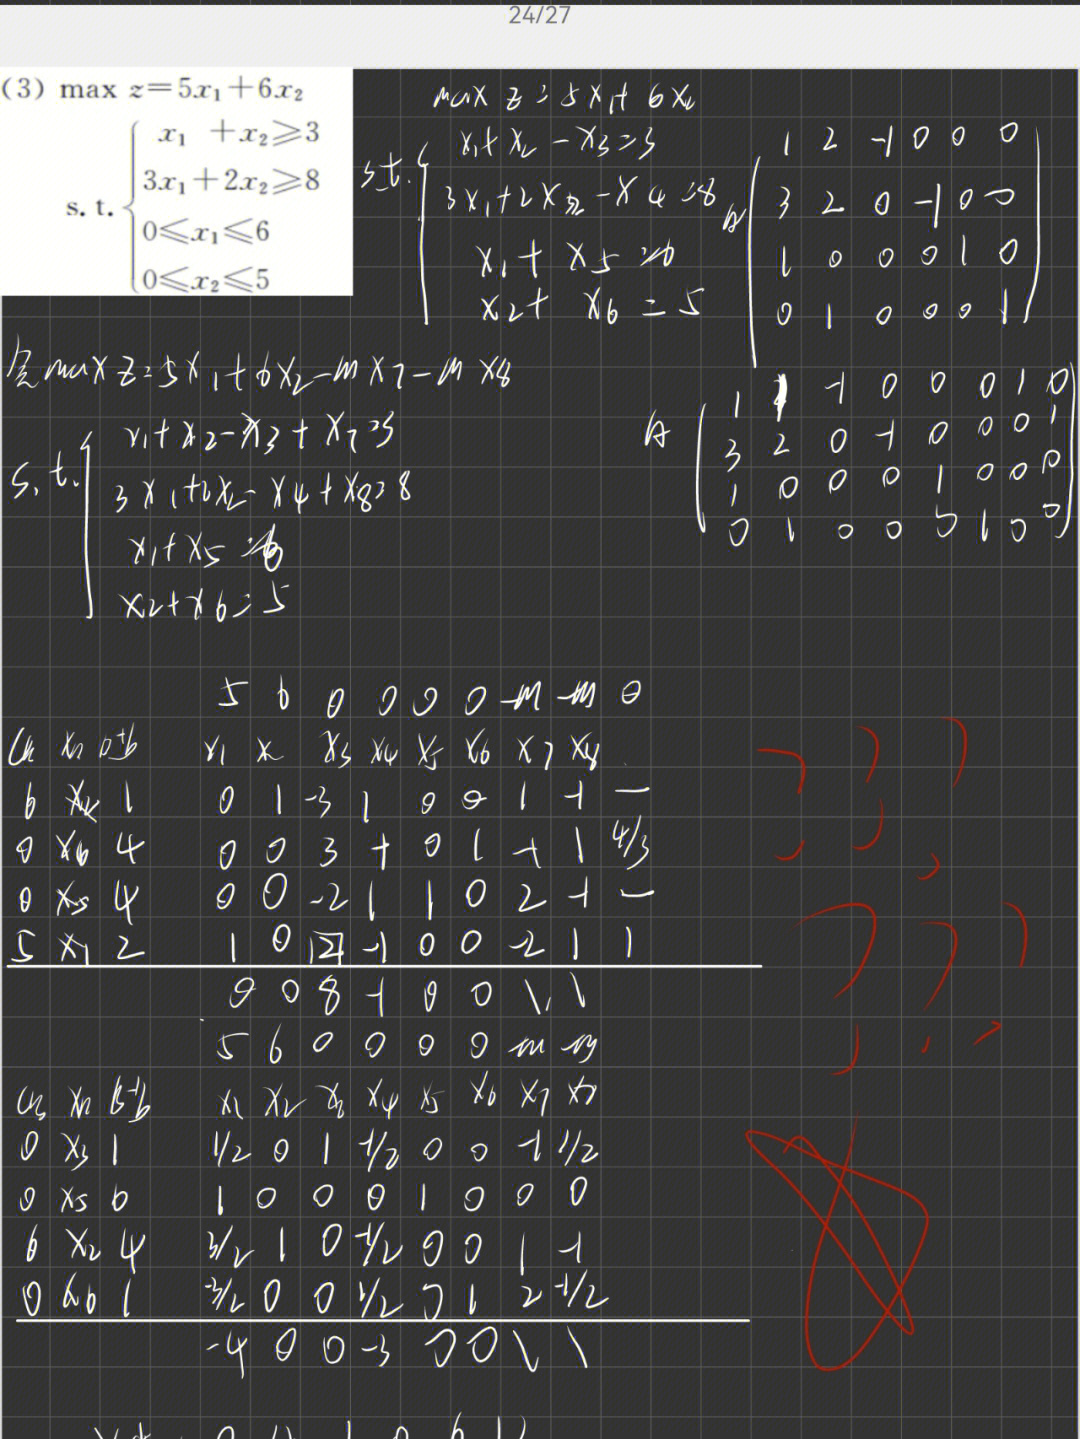 24/27
(3) max z=5x₁+6x₂
s. t.
x₁ +x₂≥3
3x₁+2x₂≥8
0≤x₁≤6
0≤x₂≤5
max z = 5x₁+ 6x₂
s.t.
x₁+ x₂ - x₃ = 3
3x₁+2x₂ - x4 = 8
x₁ + x5 = 6
x2+ x6 = 5
A
1 2 -1 0 0 0
3 2 0 -1 0 0
1 0 0 0 1 0
0 1 0 0 0 1
max z = 5x₁+6x₂-Mx7-Mx8
s.t.
x₁+x2-x3+x7=3
3x₁+2x2-x4+x8=8
x₁+x5=6
x2+x6=5
A
1 1 -1 0 0 0 1 0
3 2 0 -1 0 0 0 1
1 0 0 0 1 0 0 0
0 1 0 0 0 1 0 0
5 6 0 0 0 0 -M -M θ
CB XB B⁻¹b x1 x2 x3 x4 x5 x6 x7 x8
6 x2 1 0 1 -3 1 0 0 1 -1 —
0 x6 4 0 0 3 -1 0 1 -1 1 4/3
0 x5 4 0 0 -2 1 1 0 2 -1 —
5 x1 2 1 0 [2] -1 0 0 -2 1 1
0 0 8 -1 0 0 \ \
5 6 0 0 0 0 -m -m
CB XB B⁻¹b x1 x2 x3 x4 x5 x6 x7 x8
0 x3 1 1/2 0 1 -1/2 0 0 -1 1/2
0 x5 6 1 0 0 0 1 0 0 0
6 x2 4 3/2 1 0 -1/2 0 0 1 -1
0 x6 1 -3/2 0 0 1/2 0 1 2 -1/2
-4 0 0 -3 0 0 \ \